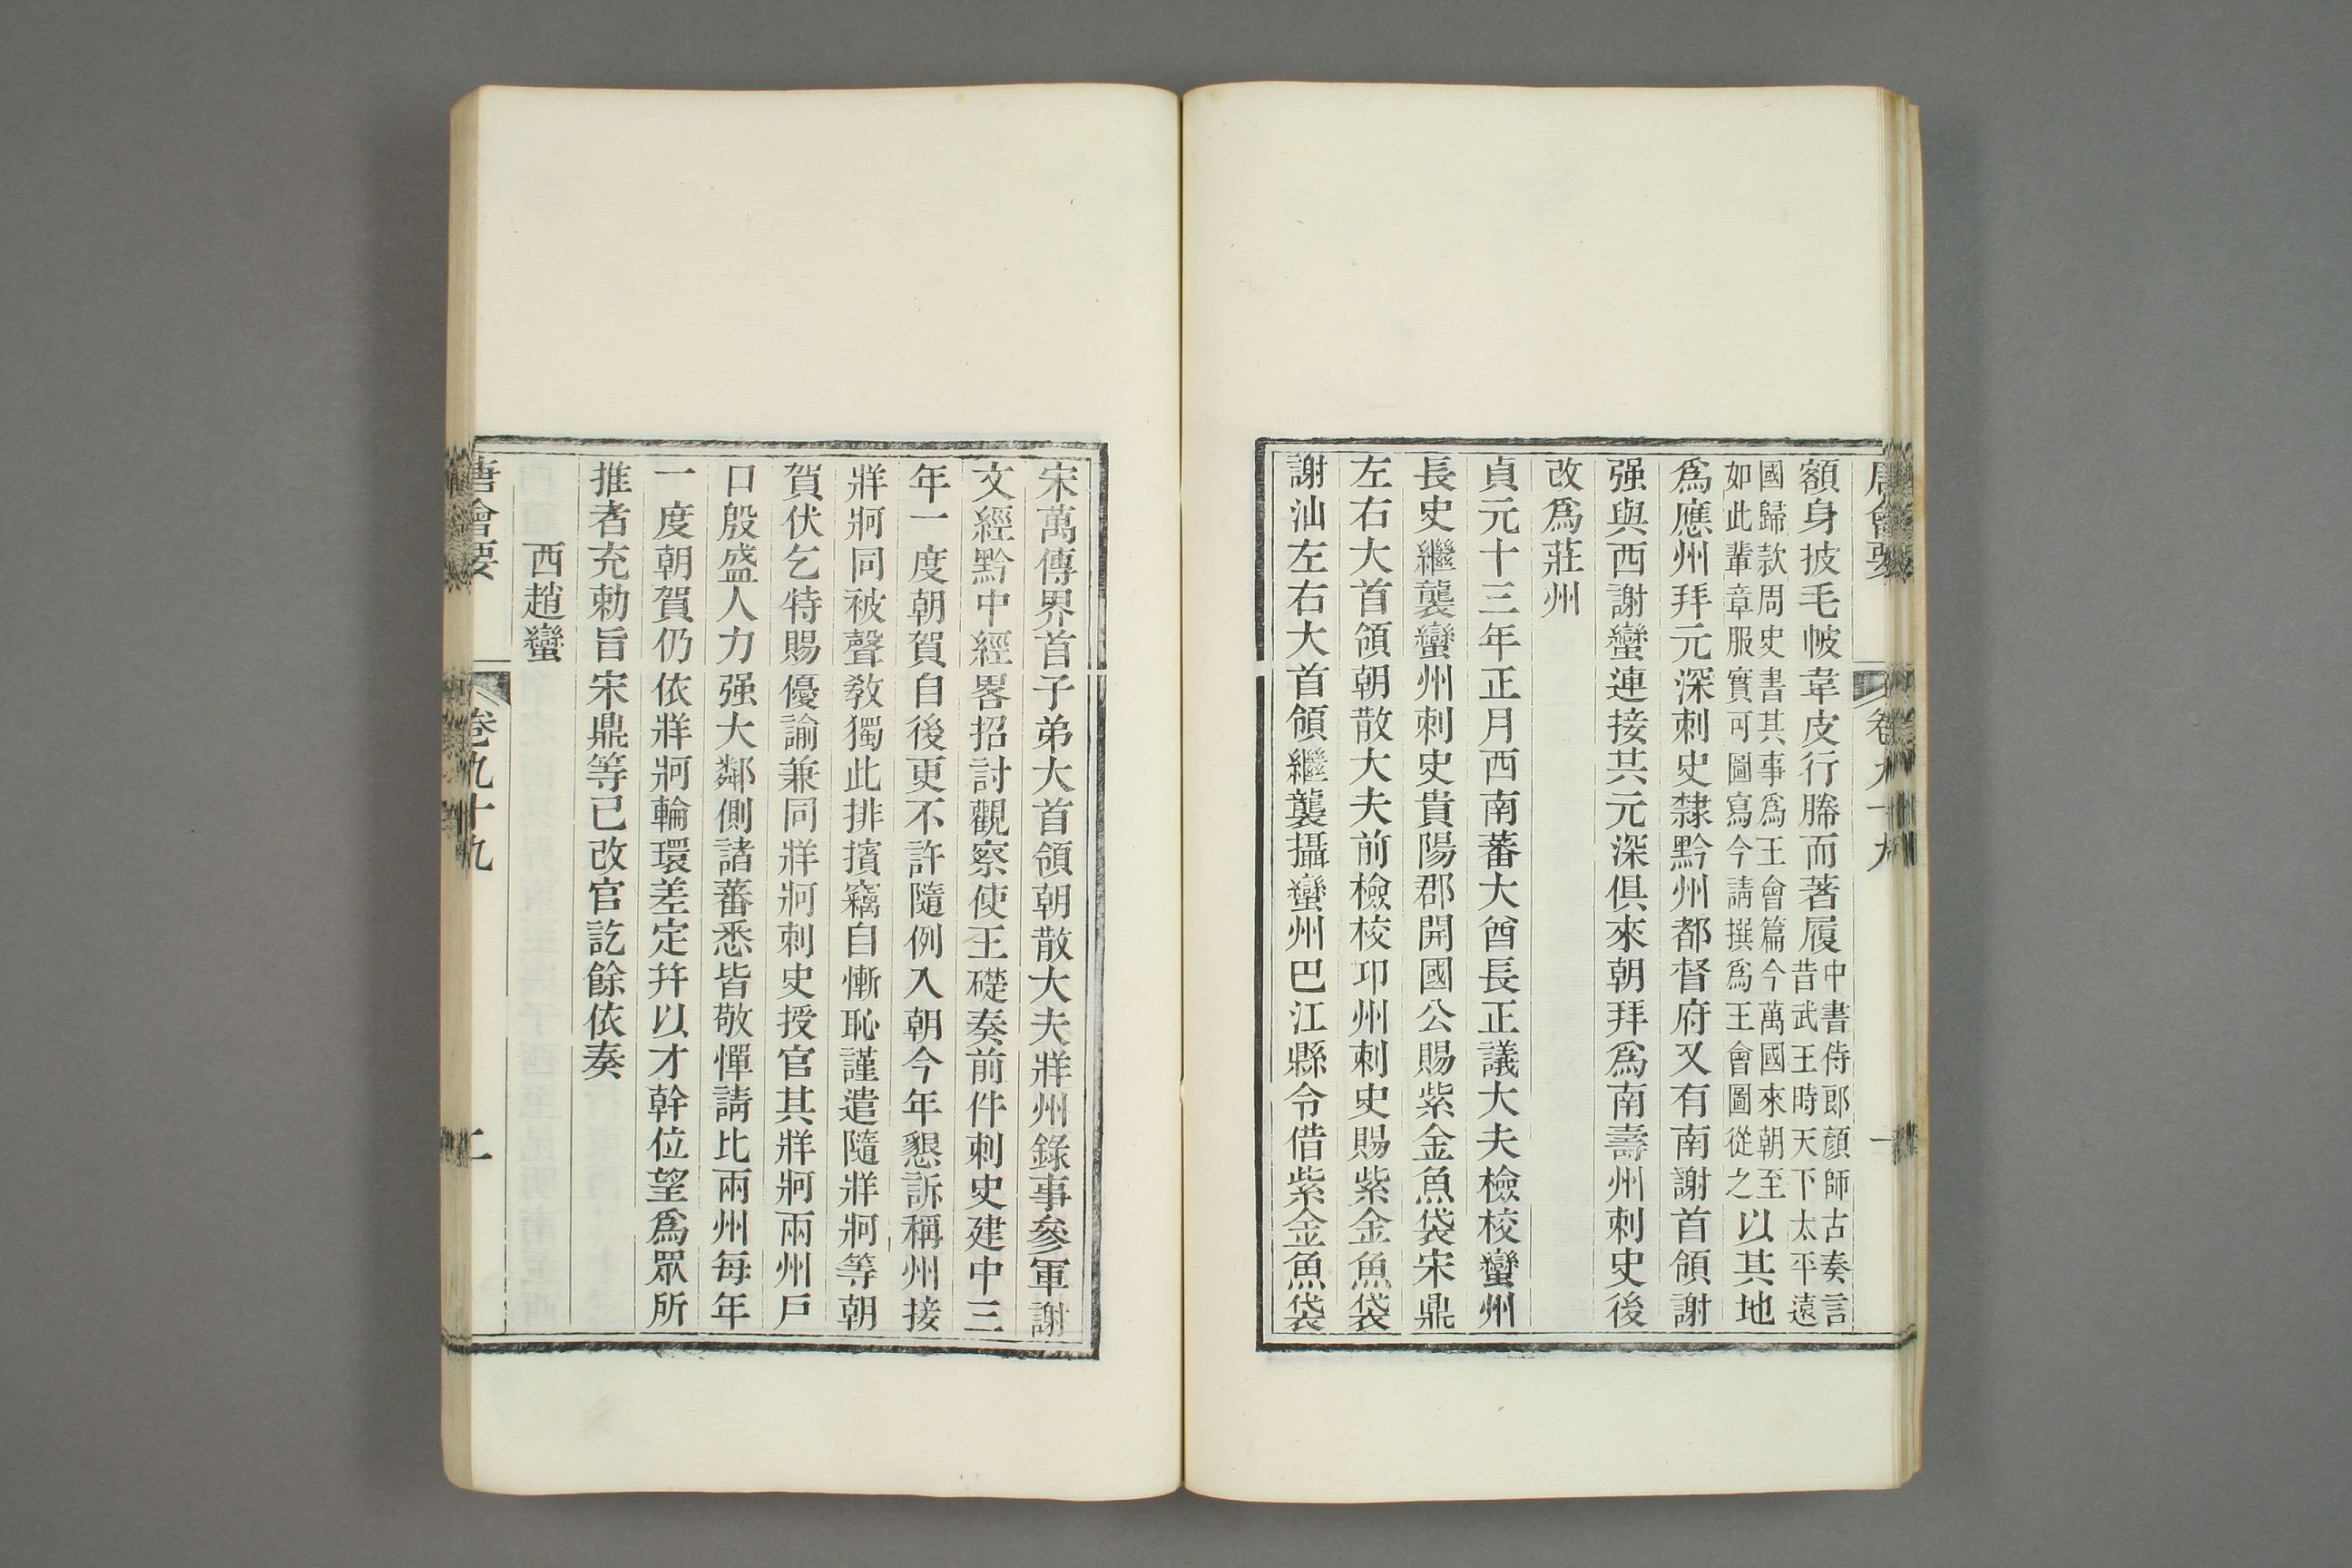 唐會要 卷九十九 一
額身披毛帔韋皮行縢而著履中書侍郎顏師古奏言昔武王時天下太平遠
國歸款周史書其事爲王會篇今萬國來朝至如此輩章服實可圖寫今請撰爲王會圖從之以其地
爲應州拜元深刺史隸黔州都督府又有南謝首領謝
强與西謝蠻連接共元深俱來朝拜爲南壽州刺史後
改爲莊州
貞元十三年正月西南蕃大酋長正議大夫檢校蠻州
長史繼襲蠻州刺史貴陽郡開國公賜紫金魚袋宋鼎
左右大首領朝散大夫前檢校卭州刺史賜紫金魚袋
謝汕左右大首領繼襲攝蠻州巴江縣令借紫金魚袋
宋萬傳界首子弟大首領朝散大夫牂州錄事參軍謝
文經黔中經畧招討觀察使王礎奏前件刺史建中三
年一度朝賀自後更不許隨例入朝今年懇訴稱州接
牂牁同被聲敎獨此排擯竊自慚恥謹遣隨牂牁等朝
賀伏乞特賜優諭兼同牂牁刺史授官其牂牁兩州戶
口殷盛人力强大鄰側諸蕃悉皆敬憚請比兩州每年
一度朝賀仍依牂牁輪環差定幷以才幹位望爲眾所
推者充勅旨宋鼎等已改官訖餘依奏
西趙蠻
唐會要 卷九十九 二